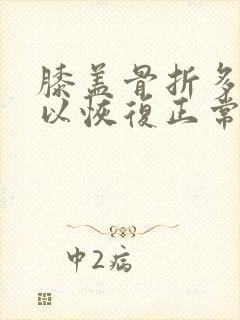 膝盖骨折多
以恢復正常
中2病